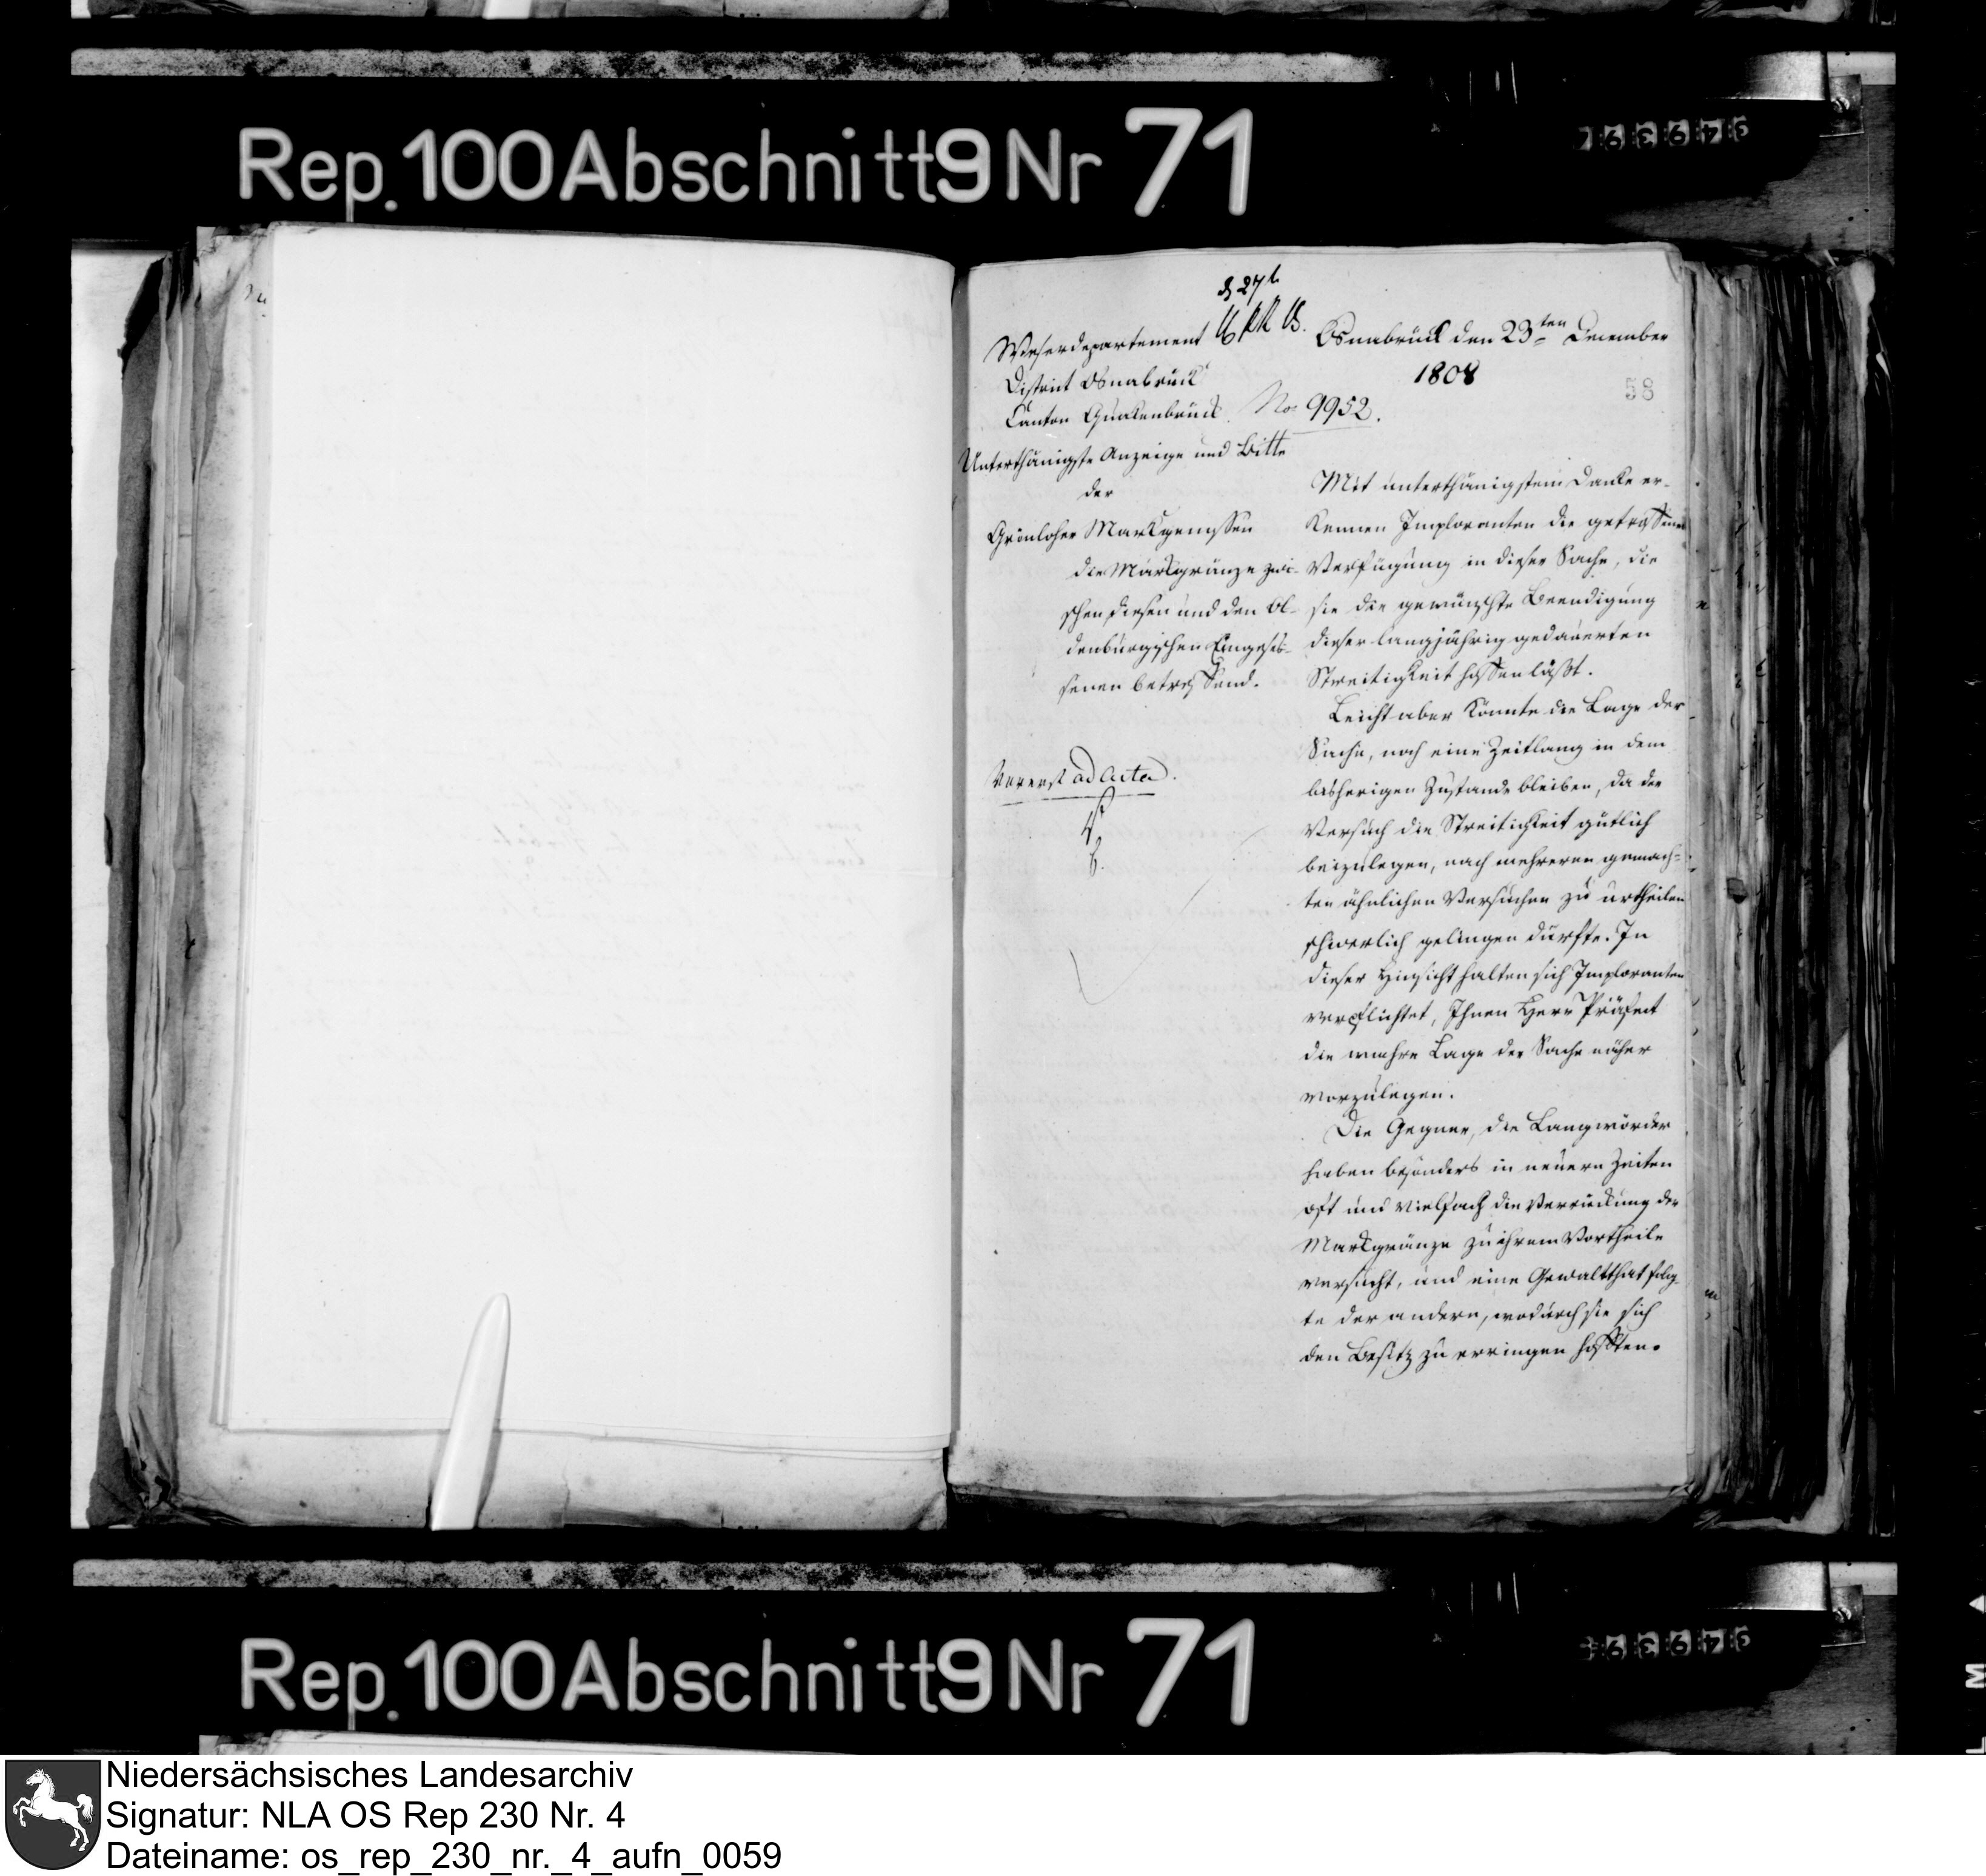 Rep. 100 Abschnitt 9 Nr 71
Weserdepartement
District Osnabrück
Canton Quakenbrück
No 9952.
Osnabrück den 23ten December
1808
58
Unterthänigste Anzeige und Bitte
der
Grönloher Markgenossen
die Markgränze zwi-
schen diesen und den Ol-
denburgischen Eingeses-
senen betreffend.
Vorerst ad acta.
Mit unterthänigstem Danke er-
kennen Imploranten die getroffene
Verfügung in dieser Sache, die
sie die gewünschte Beendigung
dieser langjährig gedauerten
Streitigkeit hoffen läßt.
Leicht aber könnte die Lage der
Sache, noch eine Zeitlang in dem
bisherigen Zustande bleiben, da der
Versuch die Streitigkeit gütlich
beizulegen, nach mehreren gemach-
ten ähnlichen Versuchen zu urtheilen
schwerlich gelingen dürfte. In
dieser Hinsicht halten sich Imploranten
verpflichtet, Ihnen Herr Präfect
die wahre Lage der Sache näher
vorzulegen.
Die Gegner, die Langwörder
haben besonders in neuern Zeiten
oft und vielfach die Verrückung der
Markgränze zu ihrem Vortheile
versucht, und eine Gewaltthat folg-
te der andern, wodurch sie sich
den Besitz zu erringen hofften.
Rep. 100 Abschnitt 9 Nr 71
Niedersächsisches Landesarchiv
Signatur: NLA OS Rep 230 Nr. 4
Dateiname: os_rep_230_nr._4_aufn_0059